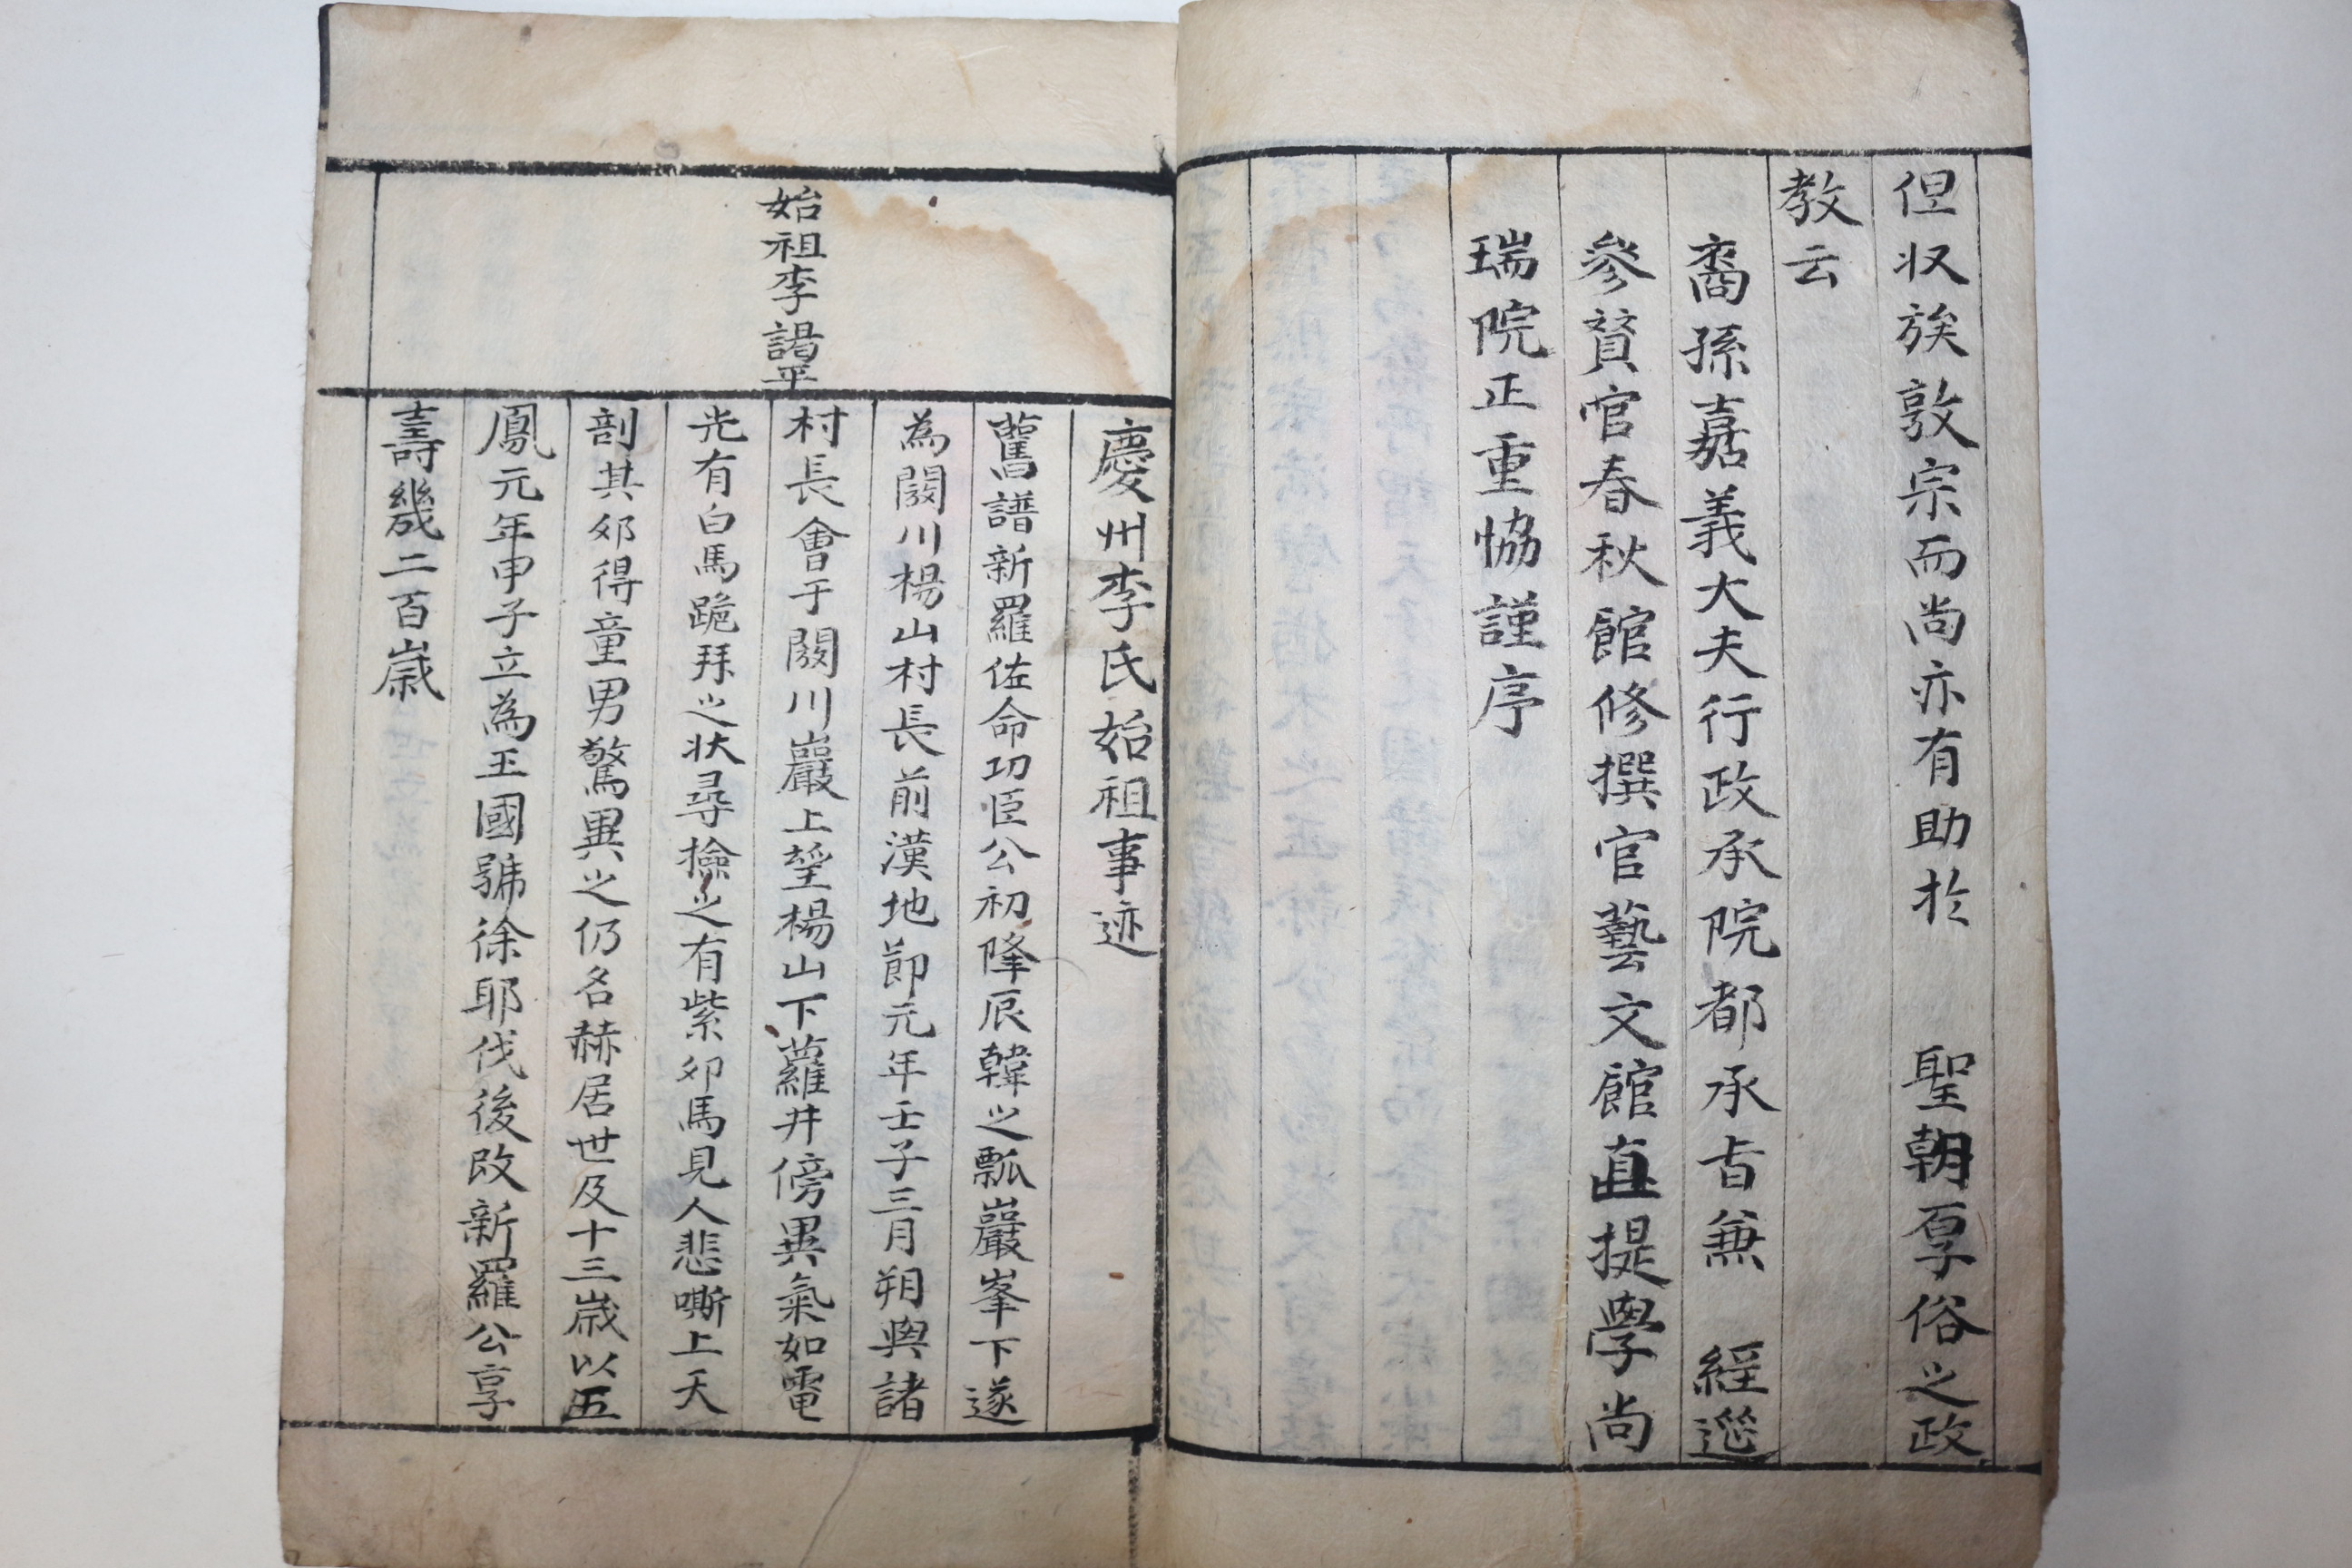 但收族敦宗而尚亦有助於 聖朝厚俗之政
教云
裔孫嘉義大夫行政承院都承旨兼 經筵
參贊官春秋館修撰官藝文館直提學尚
瑞院正重協謹序
始祖李謁平
慶州李氏始祖事迹
舊譜新羅佐命功臣公初降辰韓之瓢巖峯下遂
為閼川楊山村長前漢地節元年壬子三月朔與諸
村長會于閼川巖上望楊山下蘿井傍異氣如電
光有白馬跪拜之狀尋撿之有紫卵馬見人悲嘶上天
剖其卵得童男驚異之仍名赫居世及十三歲以五
鳳元年甲子立為王國號徐耶伐後改新羅公享
壽幾二百歲